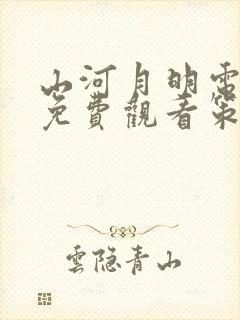 山河月明電
免費觀看第
雲隐青山